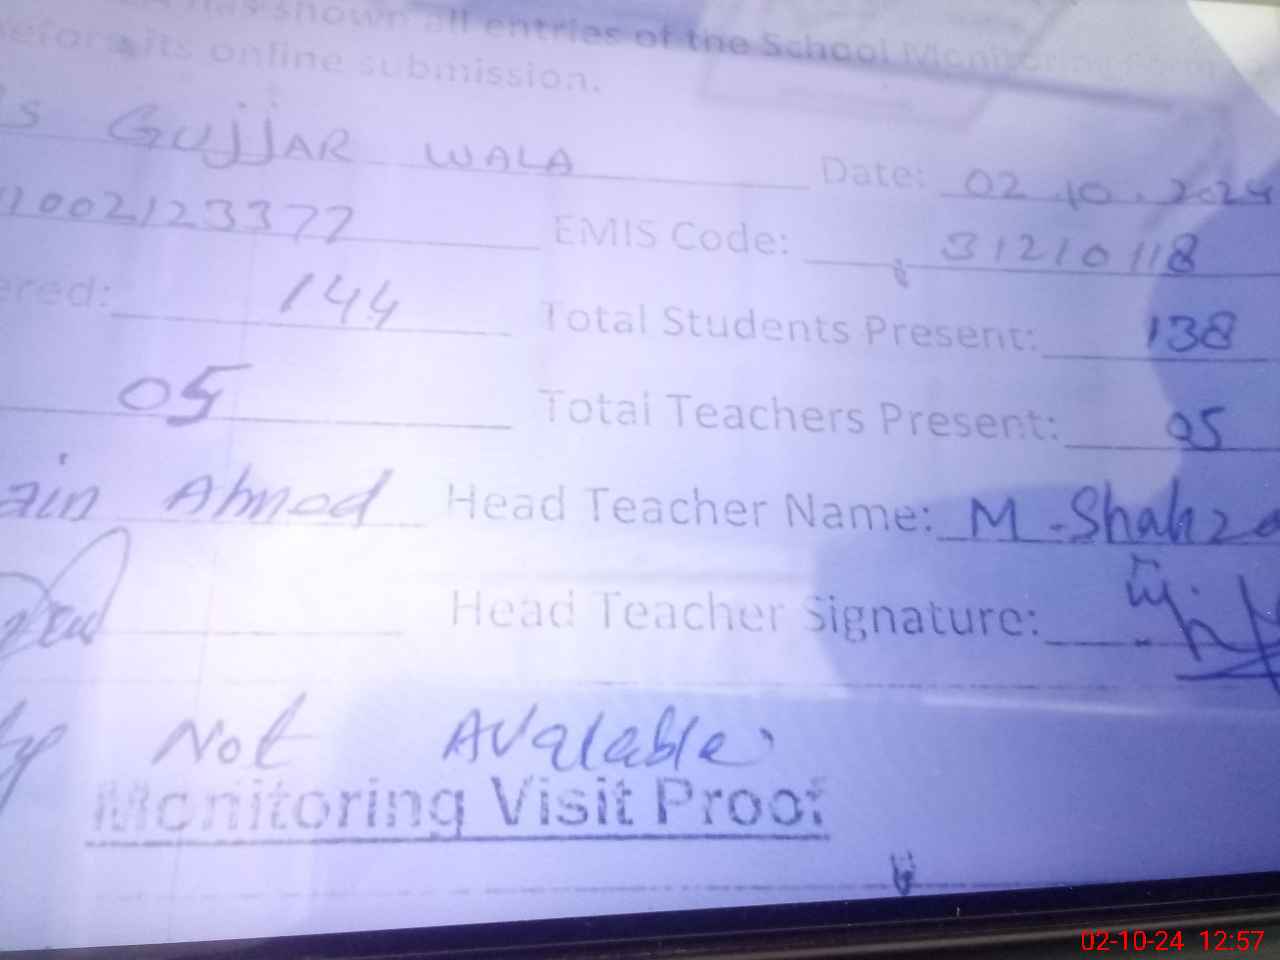 has shown all entries of the School Monitoring Form
before its online submission.
s GUJJAR WALA Date: 02.10.2024
1002123377 EMIS Code: 31210118
ered: 144 Total Students Present: 138
05 Total Teachers Present: 05
ain Ahmed Head Teacher Name: M-Shahza
Head Teacher Signature:
Not Avalable
Monitoring Visit Proof
02-10-24 12:57